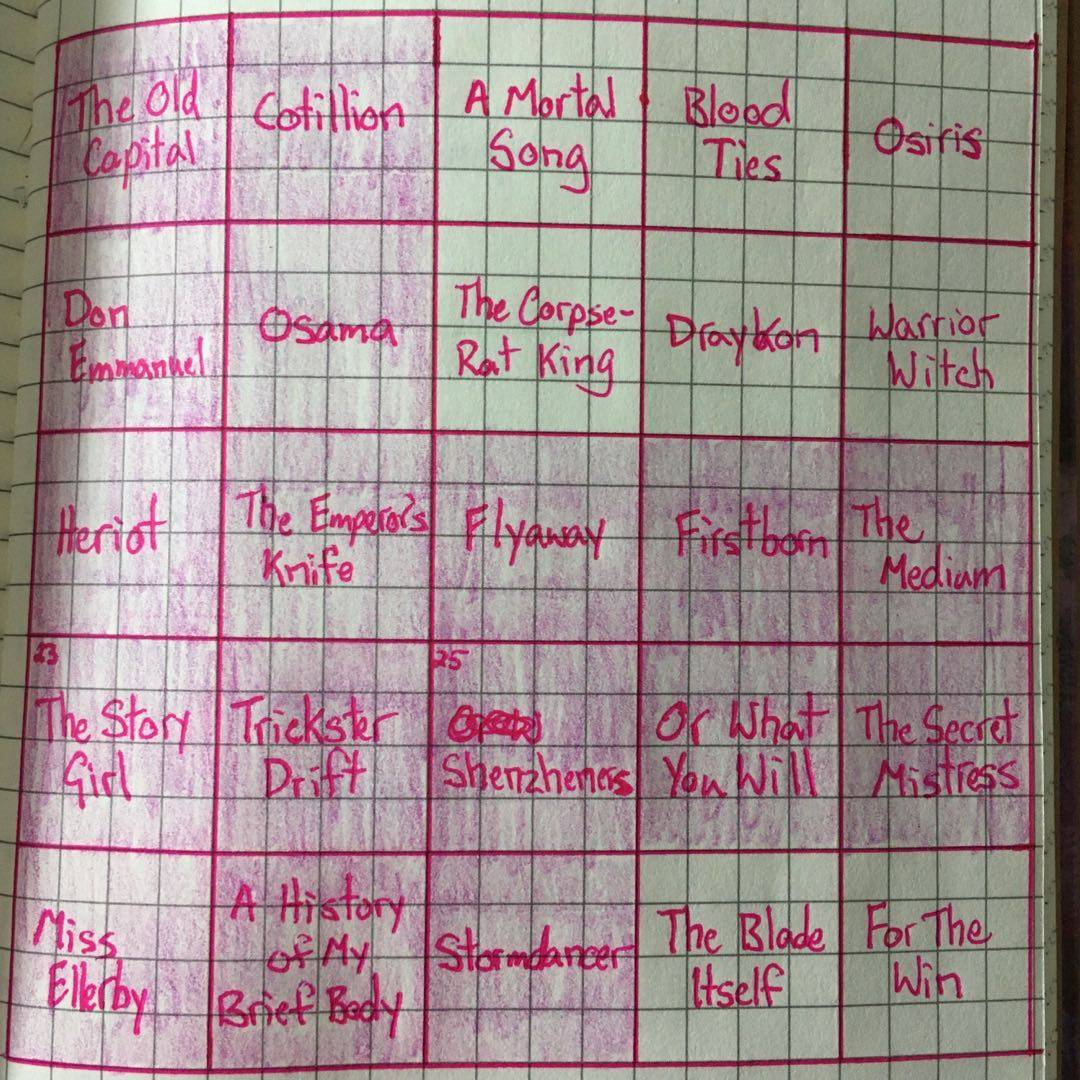 The Old
Capital
Cotillion
A Mortal
Song
Blood
Ties
Osiris
Don
Emmanuel
Osama
The Corpse-
Rat King
Draykon
Warrior
Witch
Heriot
The Emperor's
Knife
Flyaway
Firstborn
The
Medium
23
The Story
Girl
Trickster
Drift
25
Shenzheness
Or What
You Will
The Secret
Mistress
Miss
Ellerby
A History
of My
Brief Body
Stormdancer
The Blade
Itself
For The
Win